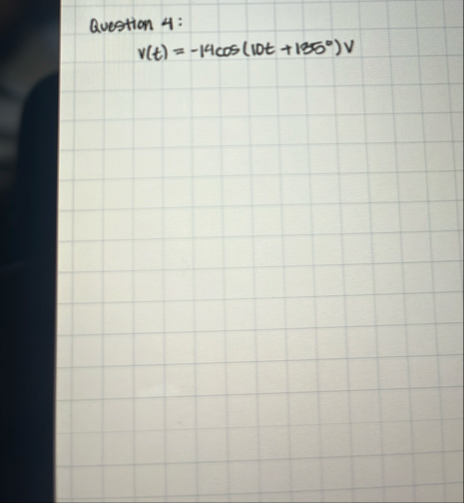 Question 4:
v(t) = -14cos(10t + 135°) V